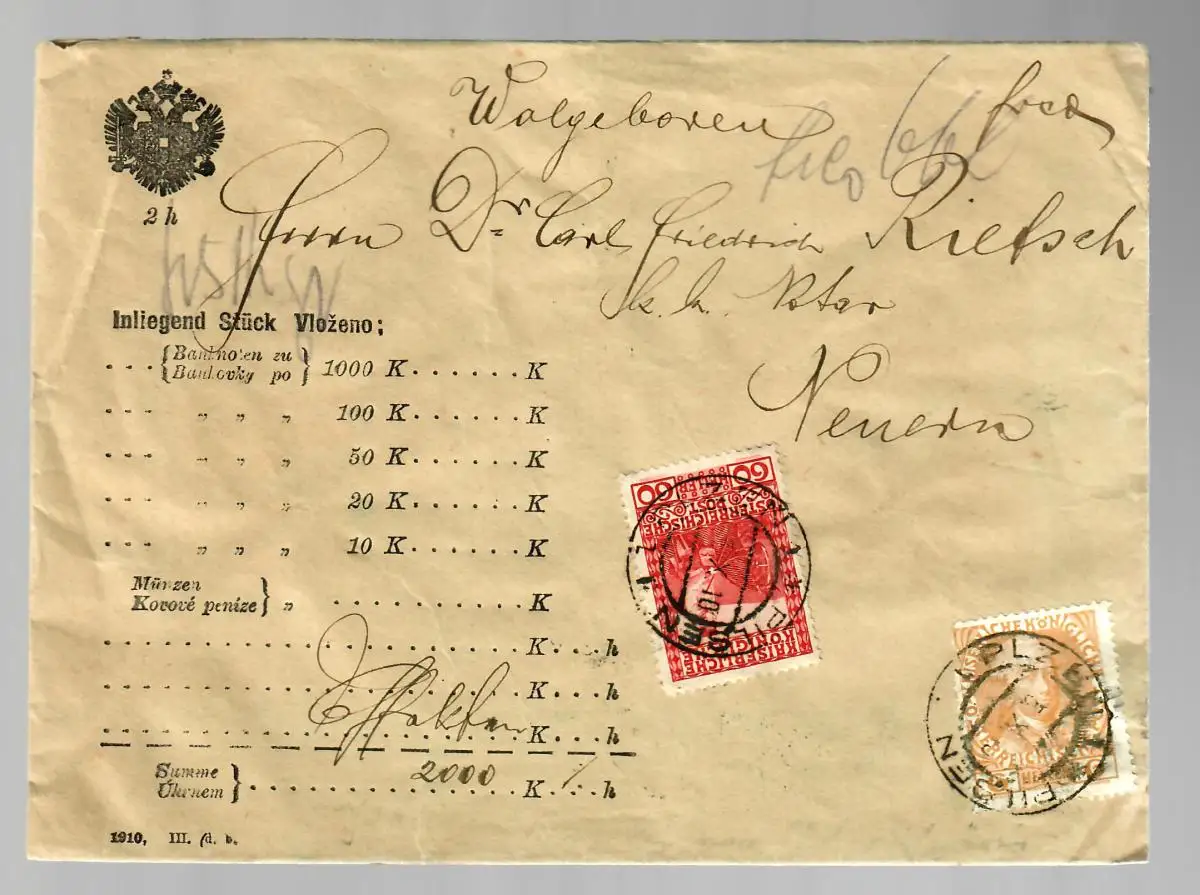 Wolgeboren
Herrn Dr. Carl Friedrich Rietsch
k. k. Notar
Neuern
2 h
Inliegend Stück Vloženo;
Banknoten zu
Bankovky po
1000 K K
" " " 100 K K
" " " 50 K K
" " " 20 K K
" " " 10 K K
Münzen
Kovové peníze " K
K h
K h
Effekten K h
Summe
Úhrnem 2000 K h
1910, III. (d. b.
60 60
HELLER
POST
ÖSTERREICHISCHE
KAISERLICHE
KÖNIGLICHE
PILSEN 1
PLZEŇ 1
PILSEN